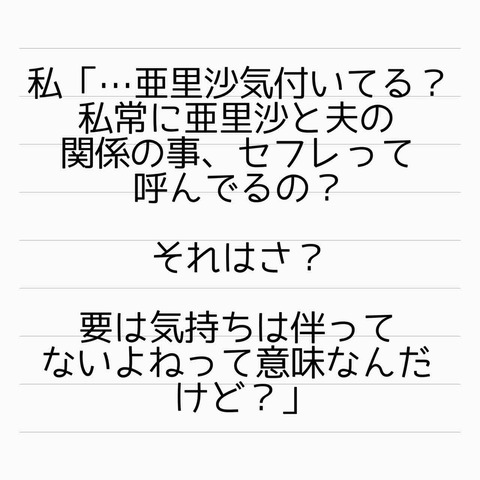 私「…亜里沙気付いてる？
私常に亜里沙と夫の
関係の事、セフレって
呼んでるの？
それはさ？
要は気持ちは伴って
ないよねって意味なんだ
けど？」